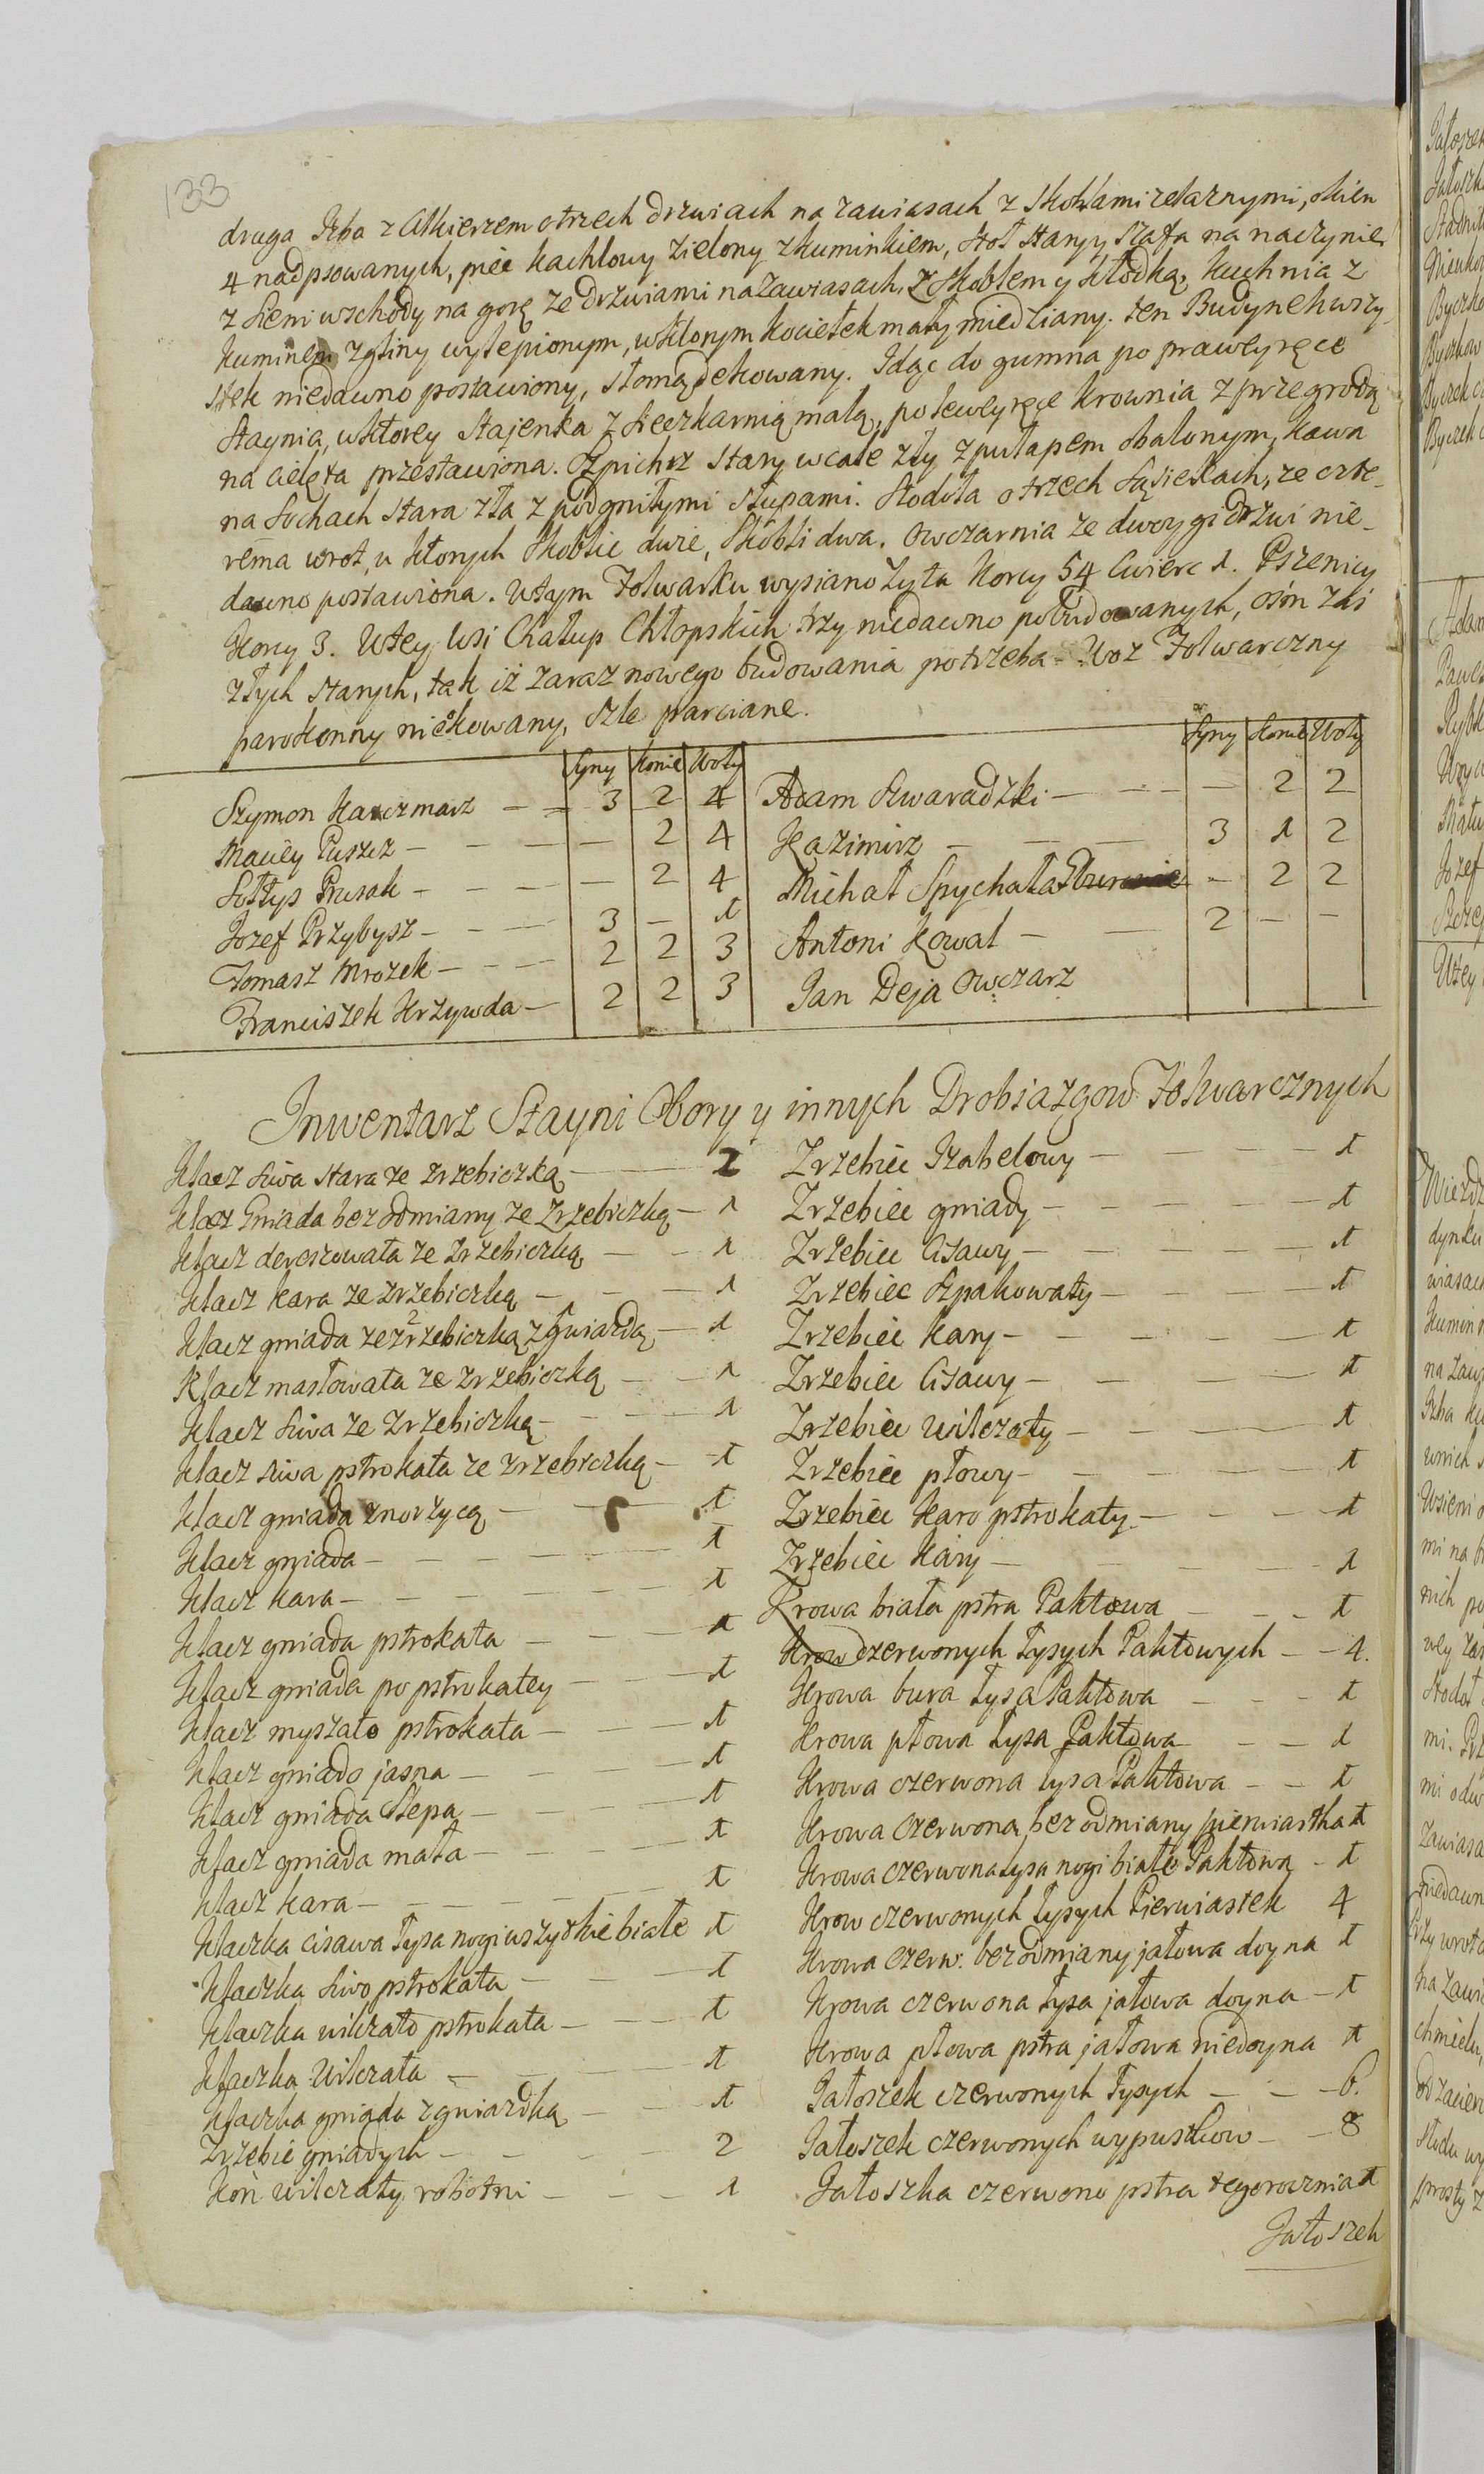 133
druga Izba z Alkierzem o trzech drzwiach na zawiasach z skoblami żelaznymi, okien
4 nadpsowanych, piec kachlowy zielony z kuminkiem, stoł stary, szafa na naczynie,
z sieni wschody na gorę ze drzwiami na zawiasach, z skoblem y kłodką, kuchnia z
kuminem z gliny wylepionym, w ktorym kociełek mały miedziany. ten Budynek wszy-
stek niedawno postawiony, słomą dekowany. Idąc do gumna po prawey ręce
Staynia, w ktorey stajenka z sieczkarnią małą, po lewey ręce krownia z przegrodą
na cielęta przestawiona. Szpichrz stary wcale zły z pułapem obalonym, kawa
na sochach stara zła z podgniłymi słupami. Stodoła o trzech sąsiekach, ze czte-
rema wrot, u ktorych skoble dwie, skobli dwa. Owczarnia ze dwoygi drzwi nie-
dawno postawiona. W tym Folwarku wysiano żyta Korcy 54 ćwierć 1. Pszenicy
Korcy 3. W tey Wsi Chałup Chłopskich trzy niedawno pobudowanych, ośm zaś
złych starych, tak iż zaraz nowego budowania potrzeba. Woz Folwarczny
parokonny niekowany, szle parciane.
Syny Konie Woły Syny Konie Woły
Szymon Karczmarz - - 3 2 4 Adam Swaradzki - - - - 2 2
Maciey Puszcz - - - - 2 4 Kazimirz - - - 3 1 2
Sołtys Prusak - - - - 2 4 Michał Spychała - 2 2
Jozef Przybysz - - - 3 - 1 Antoni Kowal - - 2 - -
Tomasz Mrozek - - - 2 2 3 Jan Deja Owczarz
Franciszek Krzywda - 2 2 3
Inwentarz Stayni Obory y innych Drobiazgow Folwarcznych
Klacz siwa stara ze zrzebiczką - - 2 Zrzebiec Izabelowy - - - - 1
Klacz Gniada bez odmiany ze Zrzebiczką - 1 Zrzebiec gniady - - - - 1
Klacz dereszowata ze zrzebiczką - - 1 Zrzebiec Cisawy - - - 1
Klacz kara ze zrzebiczką - - - 1 Zrzebiec Szpakowaty - - - 1
Klacz gniada ze 2 zrzebiczką z gwiazdą - 1 Zrzebiec kary - - - - 1
Klacz masłowata ze zrzebiczką - - 1 Zrzebiec Cisawy - - - - 1
Klacz siwa ze Zrzebiczką - - - 1 Zrzebiec wilczaty - - - 1
Klacz siwa pstrokata ze zrzebiczką - - 1 Zrzebiec płowy - - - - 1
Klacz gniada z norzycą - - - 1 Zrzebiec karo pstrokaty - - - - 1
Klacz gniada - - - - - 1 Zrzebiec kary - - - - 1
Klacz kara - - - - - 1 Krowa biała pstra Paktowa - - - 1
Klacz gniada pstrokata - - - 1 Krow czerwonych łysych Paktowych - - 4.
Klacz gniada po pstrokatey - - - 1 Krowa bura łysa Paktowa - - - 1
Klacz myszato pstrokata - - - 1 Krowa płowa łysa Paktowa - - 1
Klacz gniado jasna - - - - 1 Krowa czerwona łysa Paktowa - - 1
Klacz gniada Slepa - - - - 1 Krowa czerwona bez odmiany pierwiastka 1
Klacz gniada mała - - - - 1 Krowa czerwona łysa nogi białe Paktowa - 1
Klacz kara - - - - - 1 Krow czerwonych łysych Pierwiastek 4
Klaczka cisawa łysa nogi wszystkie białe 1 Krowa czerw: bez odmiany jałowa doyna 1
Klaczka siwo pstrokata - - - 1 Krowa czerwona łysa jałowa doyna - 1
Klaczka wilczato pstrokata - - - 1 Krowa płowa pstra jałowa niedoyna 1
Klaczka wilczata - - - - 1 Jałoszek czerwonych łysych - - - 6.
Klaczka gniada z gwiazdką - - 1 Jałoszek czerwonych wypustkow - - 8
Zrzebic gniadych - - - - 2 Jałoszka czerwono pstra tegorocznia 1
Koń wilczaty robotni - - - 1
Jałoszek